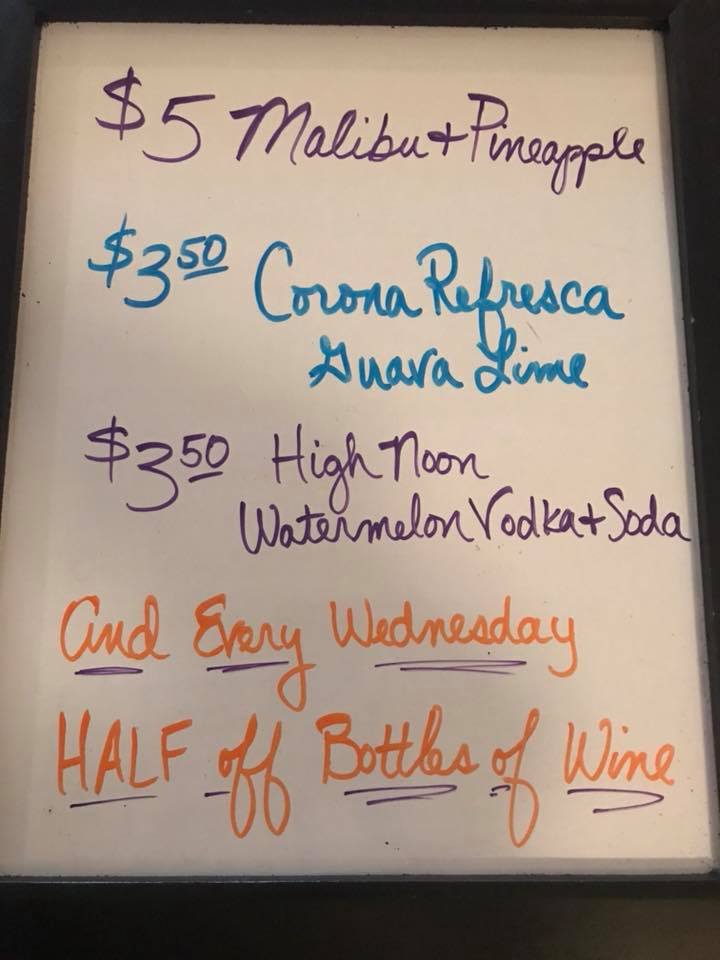 $5 Malibu + Pineapple
$3.50 Corona Refresca
Guava Lime
$3.50 High Noon
Watermelon Vodka + Soda
And Every Wednesday
HALF off Bottles of Wine